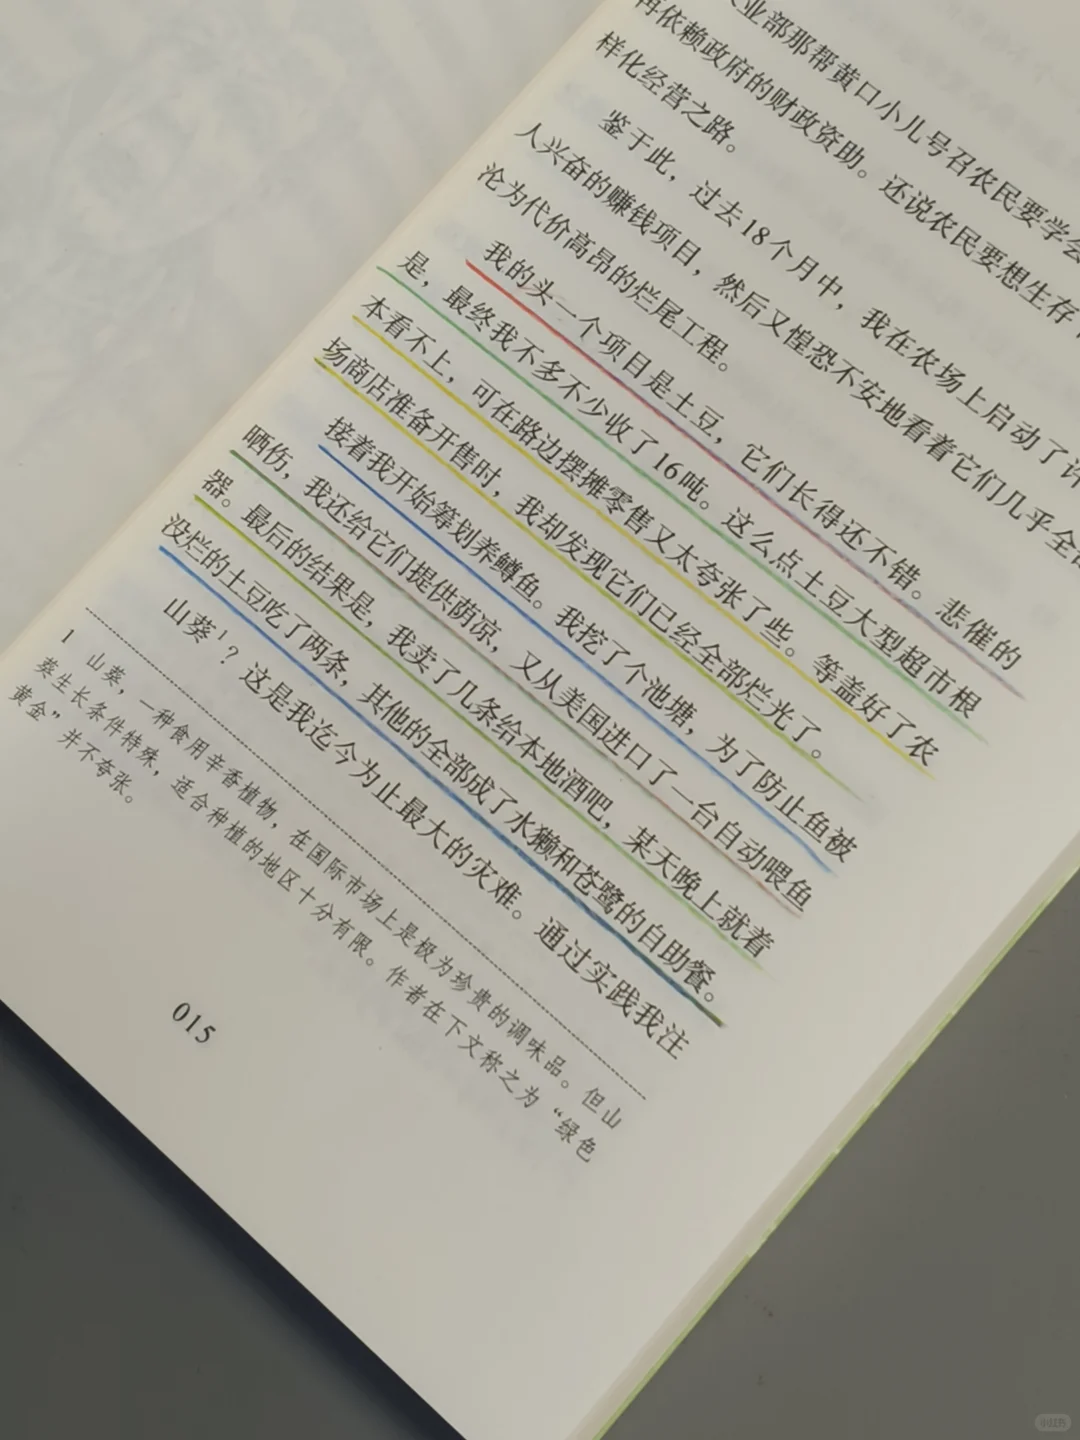 业部那帮黄口小儿号召农民要学会
再依赖政府的财政资助。还说农民要想生存
样化经营之路。
鉴于此，过去18个月中，我在农场上启动了许
人兴奋的赚钱项目，然后又惶恐不安地看着它们几乎全部
沦为代价高昂的烂尾工程。
我的头一个项目是土豆，它们长得还不错。悲催的
是，最终我不多不少收了16吨。这么点土豆大型超市根
本看不上，可在路边摆摊零售又太夸张了些。等盖好了农
场商店准备开售时，我却发现它们已经全部烂光了。
接着我开始筹划养鳟鱼。我挖了个池塘，为了防止鱼被
晒伤，我还给它们提供荫凉，又从美国进口了一台自动喂鱼
器。最后的结果是，我卖了几条给本地酒吧，某天晚上就着
没烂的土豆吃了两条，其他的全部成了水獭和苍鹭的自助餐。
山葵¹？这是我迄今为止最大的灾难。通过实践我注
1 山葵，一种食用辛香植物，在国际市场上是极为珍贵的调味品。但山
葵生长条件特殊，适合种植的地区十分有限。作者在下文称之为“绿色
黄金”并不夸张。
015
小红书